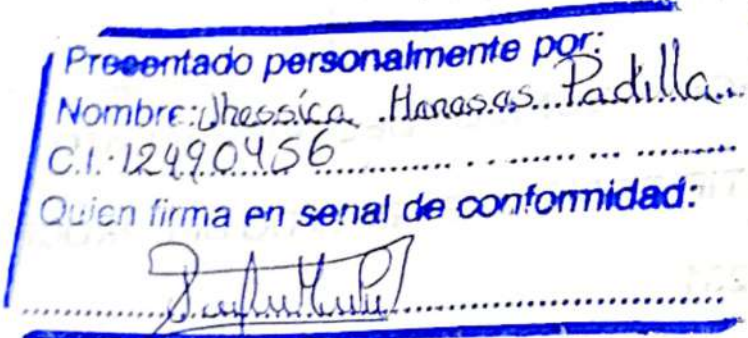 Presentado personalmente por:
Nombre: Jhessica Manasas Padilla
C.I. 12490456
Quien firma en senal de conformidad: